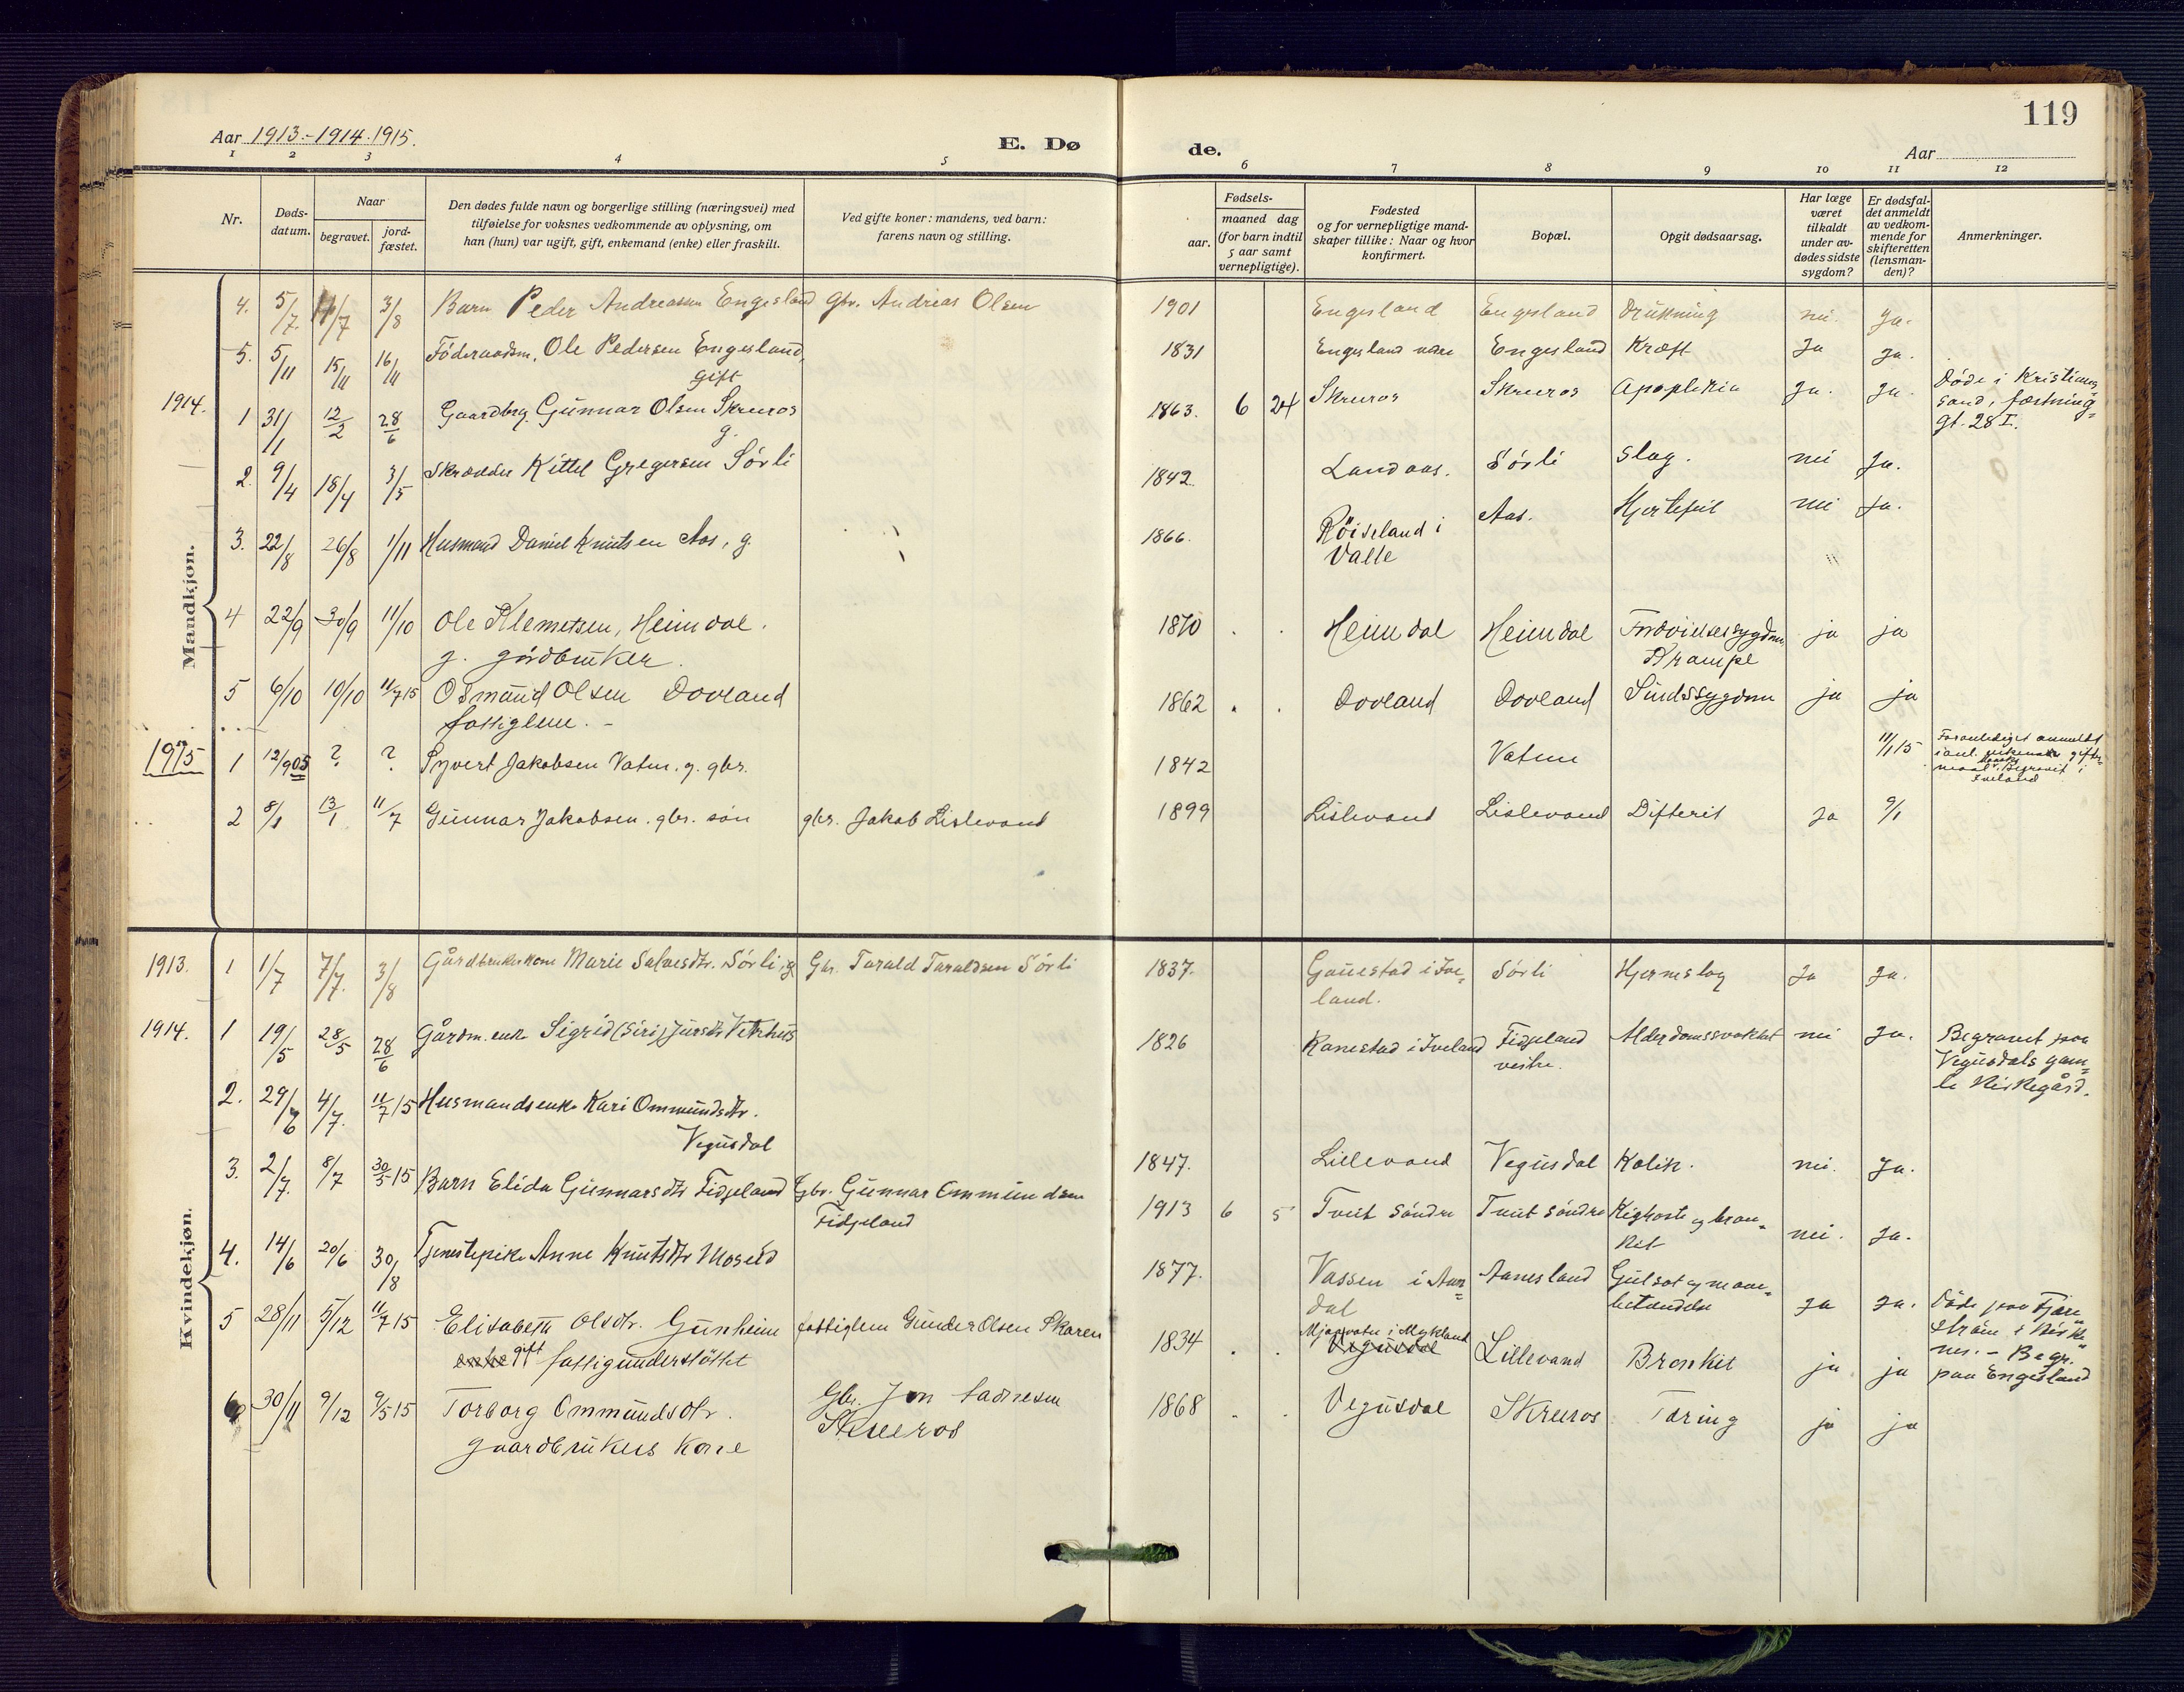 119
Aar 1913.-1914.1915.
E. Dø
de.
Aar
1 2 3 4 5 6 7 8 9 10 11 12
Nr.
Døds-
datum.
Naar
begravet.
jord-
fæstet.
Den dødes fulde navn og borgerlige stilling (næringsvei) med
tilføielse for voksnes vedkommende av oplysning, om
han (hun) var ugift, gift, enkemand (enke) eller fraskilt.
Ved gifte koner: mandens, ved barn:
farens navn og stilling.
Fødsels-
aar.
maaned dag
(for barn indtil
5 aar samt
vernepligtige).
Fødested
og for vernepligtige mand-
skaper tillike: Naar og hvor
konfirmert.
Bopæl.
Opgit dødsaarsag.
Har læge
været
tilkaldt
under av-
dødes sidste
sygdom?
Er dødsfal-
det anmeldt
av vedkom-
mende for
skifteretten
(lensman-
den)?
Anmerkninger.
Mandkjøn.
4. 5/7. 11/7 3/8 Barn Peder Andreassen Engesland Gbr. Andreas Olsen 1901 Engesland Engesland Drukning nei. Ja.
5. 5/11 15/11 16/11 Föderaadsm. Ole Pedersen Engesland, 1831 Engesland nedre Engesland Kræft Ja Ja.
gift
1914. 1 31/1 12/2 28/6 Gaardbrg. Gunnar Olsen Skreros 1863. 6 24 Skreros Skreros Apoplexia Ja. Ja. Döde i Kristians-
g.
sand, fæstning-
gt. 28 I.
2. 9/4 18/4 3/5 Skrædder Kittel Gregersen Sörli 1842. Landaas. Sörli Slag. nei Ja.
3. 22/8 26/8 1/11 Husmand Daniel Knutsen Aas, g. 1866. Röiseland i Aas. Hjertefeil nei Ja.
Valle
4 22/9 30/9 11/10 Ole Klemetsen, Heimdal. 1870 Heimdal Heimdal ja ja
g. gårdbruker.
Krampe
5 6/10 10/10 11/7 15 Osmund Olsen Dovland 1862 Dovland Dovland Sindssygdom ja ja
fattiglem. -
1915 1 12/9 05 ? ? Syvert Jakobsen Vatne. g. gbr. 1842 Vatne 11/1 15 Foranlediget anmeldt
i anl. enkens gifter-
maal. Begravet i
Iveland
2 8/1 13/1 11/7 Gunnar Jakobsen. gbr. sön gbr. Jakob Lislevand 1899 Lislevand Lislevand Difterit Ja 9/1
Kvindekjøn.
1913. 1 1/7 7/7. 3/8 Gårdbrukerkone Marie Salvesdtr. Sörli, g Gbr. Tarald Taraldsen Sörli 1837. Gauestad i Ive- Sörli Hjerneslag Ja Ja.
land.
1914. 1 19/5 28/5 28/6 Gårdm. enke Sigrid (Siri) Jursdtr Vetrhus 1826 Kanestad i Iveland Fidjeland Alderdomssvakhet nei Ja. Begravet paa
vestre.
Vegusdals gam-
le Kirkegård.
2. 29/6 4/7. 11/7 15 Husmandsenke Kari Ommundsdtr. 1847. Lillevand Vegusdal Kolik. nei. Ja.
Vegusdal
3. 2/7. 8/7 30/5 15 Barn Elida Gunnarsdtr Fidjeland Gbr. Gunnar Ommundsen 1913 6 5 Tveit söndre Tveit söndre Kighoste og bron- nei. Ja.
Fidjeland
kit
4. 14/6 20/6 30/8 Tjenestepike Anne Knutsdtr Moseid 1877. Vassen i Aam- Aanesland Gulsot og mave- Ja Ja. Döde paa Tjære
dal
betændelse
ström i Birke-
nes. - Begr.
paa Engesland
5 28/11 5/12 11/7 15 Elisabeth Olsdtr. Gunheim fattiglem Gunder Olsen Skaren 1834 Mjaavatn i Mykland Lillevand Bronkit ja ja
enke gift fattigunderstöttet
Vegusdal
6 30/11 9/12 9/5 15 Torborg Ommundsdtr. Gbr. Jon 1868 Vegusdal Skreros Tæring ja ja
gaardbrukers kone
Skreros